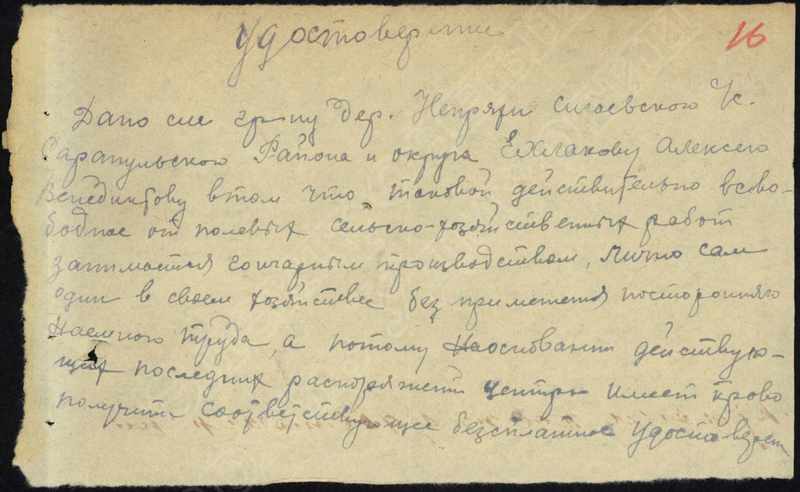 Удостоверение
16
Дано сие гр-ну дер. Непряхи Сигаевского У/с.
Сарапульского Района и округа Ехлакову Алексею
Венедиктову в том что таковой действительно в сво-
бодное от полевых сельско-хозяйственных работ
занимается гончарным производством, лично сам
один в своем хозяйстве без применения постороннего
наемного труда, а потому на основании действую-
щих последних распоряжений центра имеет право
получить соответствующее бесплатное удостоверен